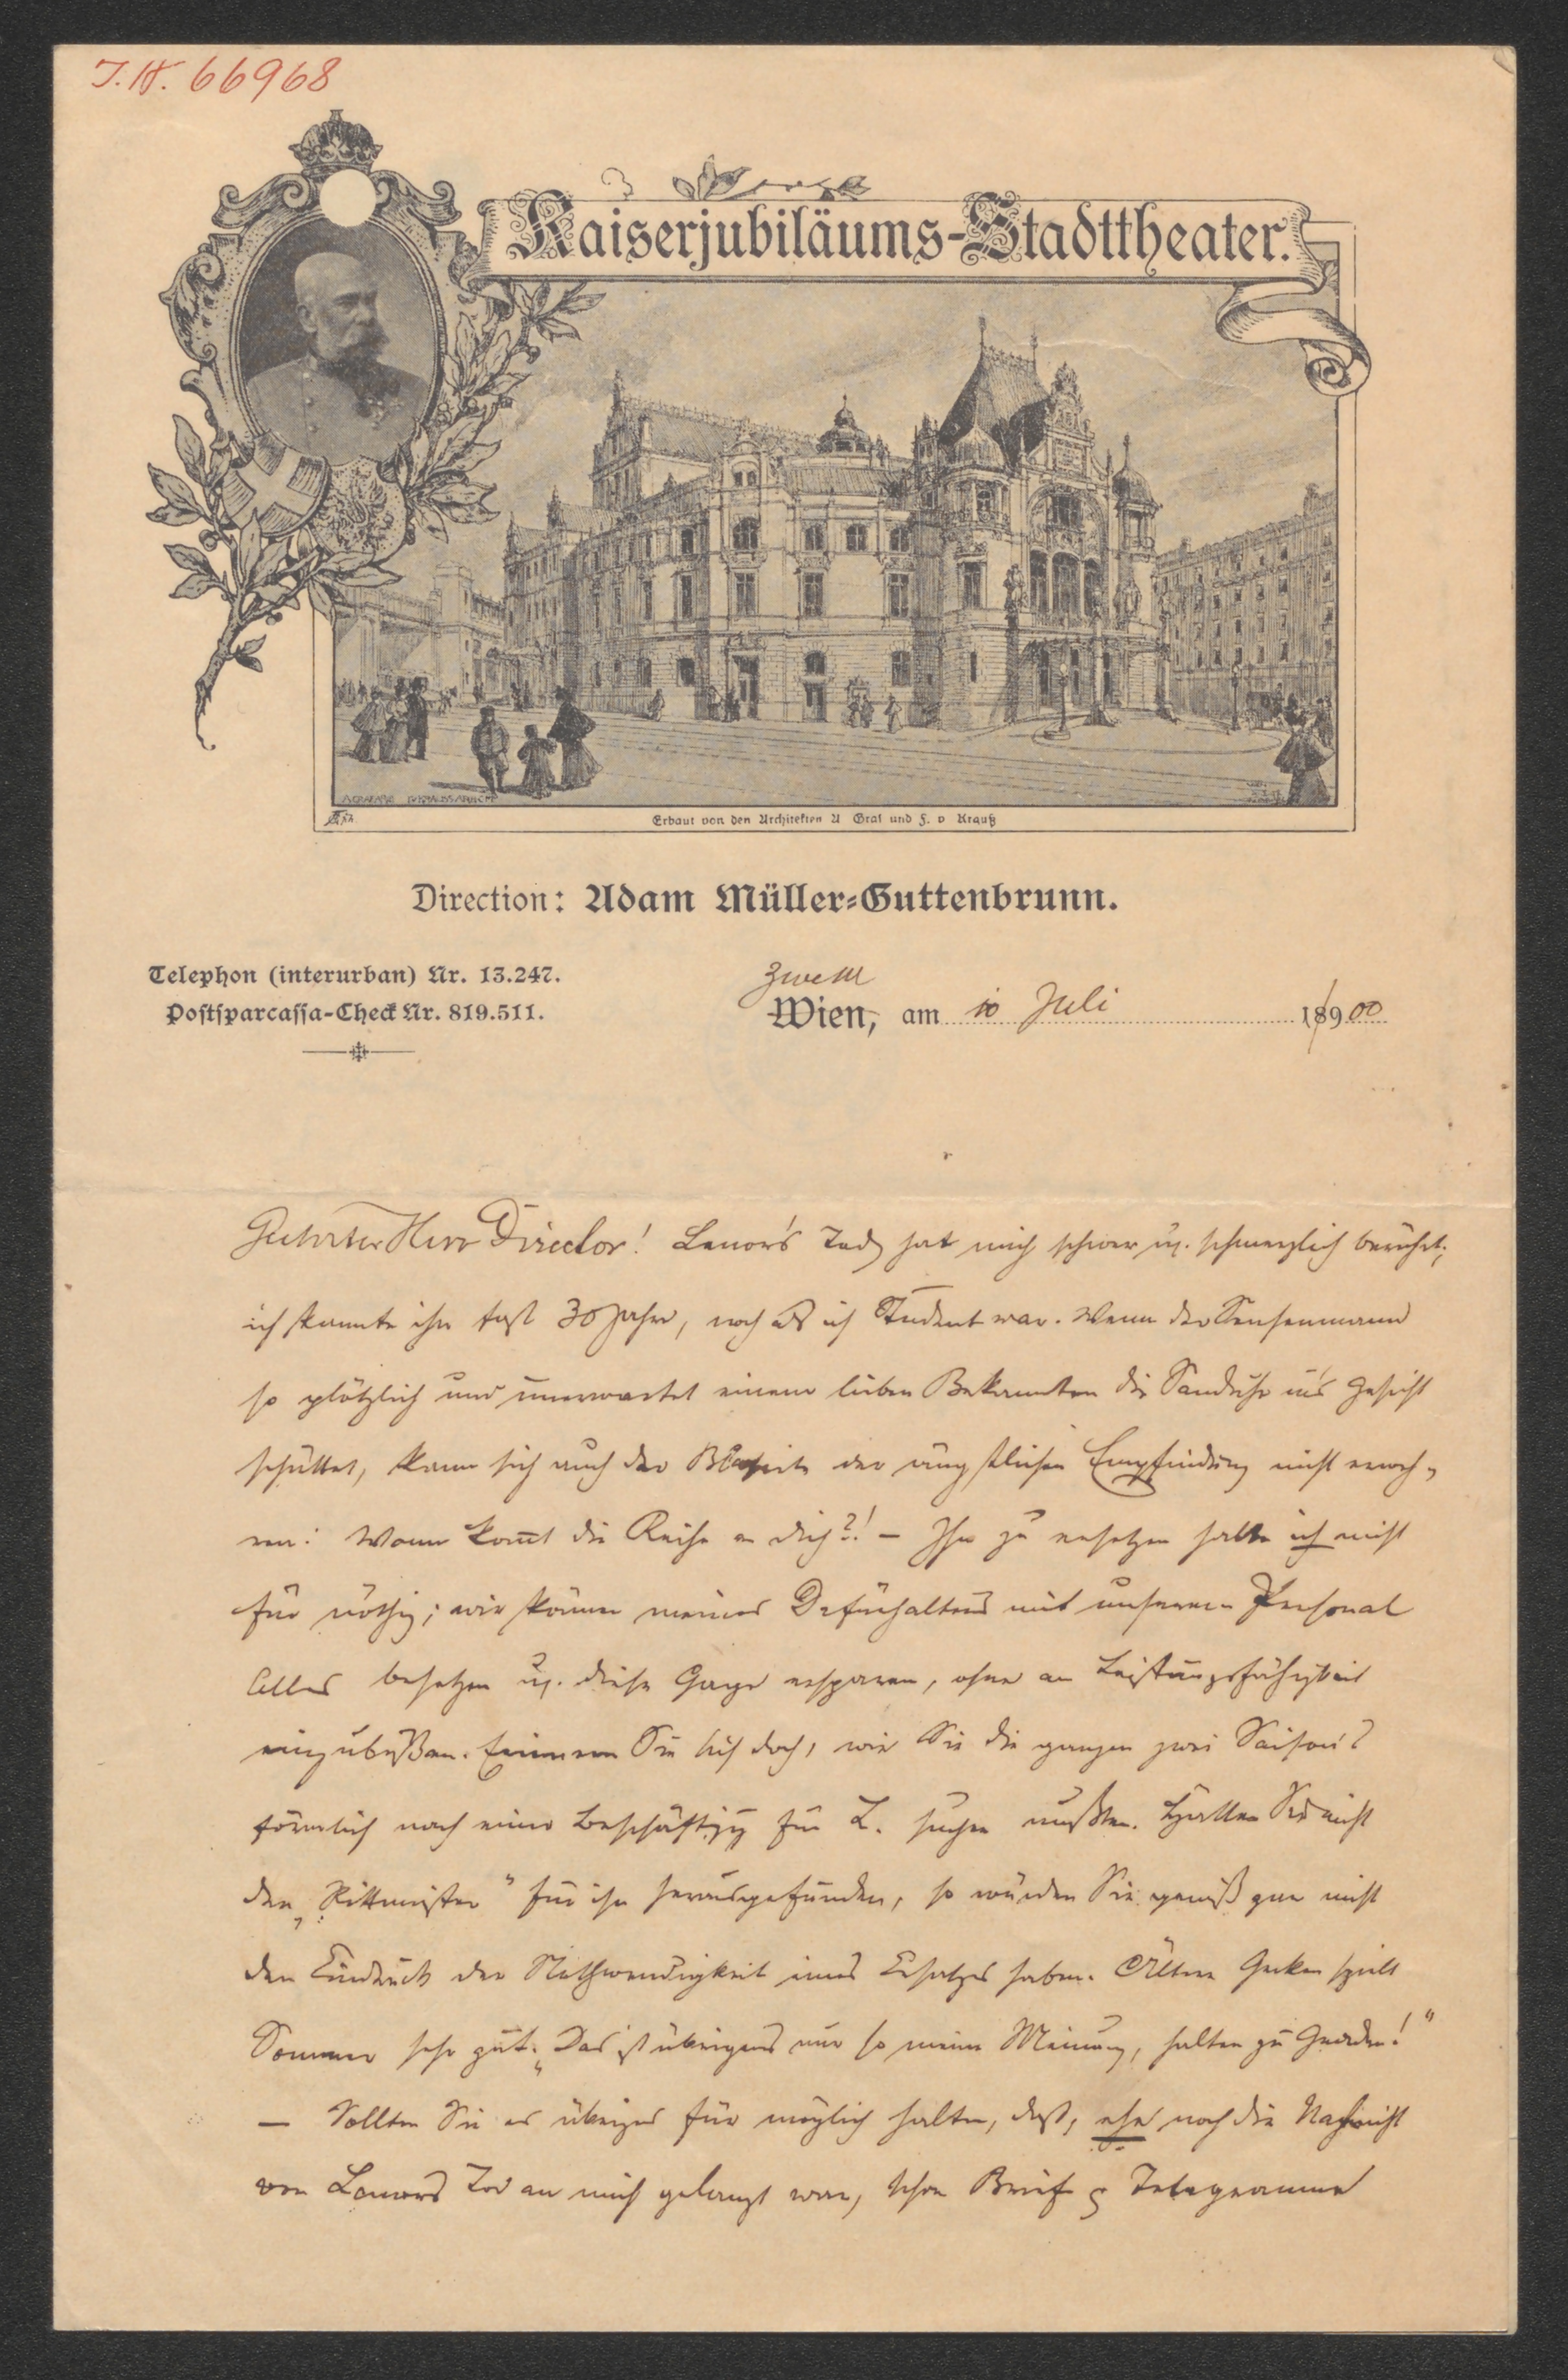 J.N. 66968
Kaiserjubiläums-Stadttheater.
Erbaut von den Architekten A Graf und F. v Krauß
Direction: Adam Müller-Guttenbrunn.
Telephon (interurban) Nr. 13.247.
Postsparcassa-Check Nr. 819.511.
Zwettl
Wien, am 10 Juli 18900
Geehrter Herr Director! Lanor's Tod hat mich schwer u. schmerzlich berührt;
ich kannte ihn fast 30 Jahre, noch als ich Student war. Wenn der Sensenmann
so plötzlich und unerwartet einem lieben Bekannten die Sanduhr in's Gesicht
schüttet, kann sich auch der Blasirte der ängstlichen Empfindung nicht erweh-
ren: Wann kommt die Reihe an dich?! – Ihn zu ersetzen halte ich nicht
für nöthig; wir können meines Dafürhaltens mit unserem Personal
Alles besetzen u. diese Gage ersparen, ohne an Leistungsfähigkeit
einzubüßen. Erinnern Sie sich doch, wie Sie die ganzen zwei Saison's
förmlich nach einer Beschäftigg für L. suchen mußten. Hätten Sie nicht
den „Rittmeister" für ihn herausgefunden, so würden Sie gewiß gar nicht
den Eindruck der Nothwendigkeit eines Ersatzes haben. Ältere Gecken spielt
Sommer sehr gut. „Das ist übrigens nur so meine Meinung, halten zu Gnaden!"
— Sollten Sie es übrigens für möglich halten, daß, ehe noch die Nachricht
von Lanors Tod an mich gelangt war, schon Briefe & Telegramme